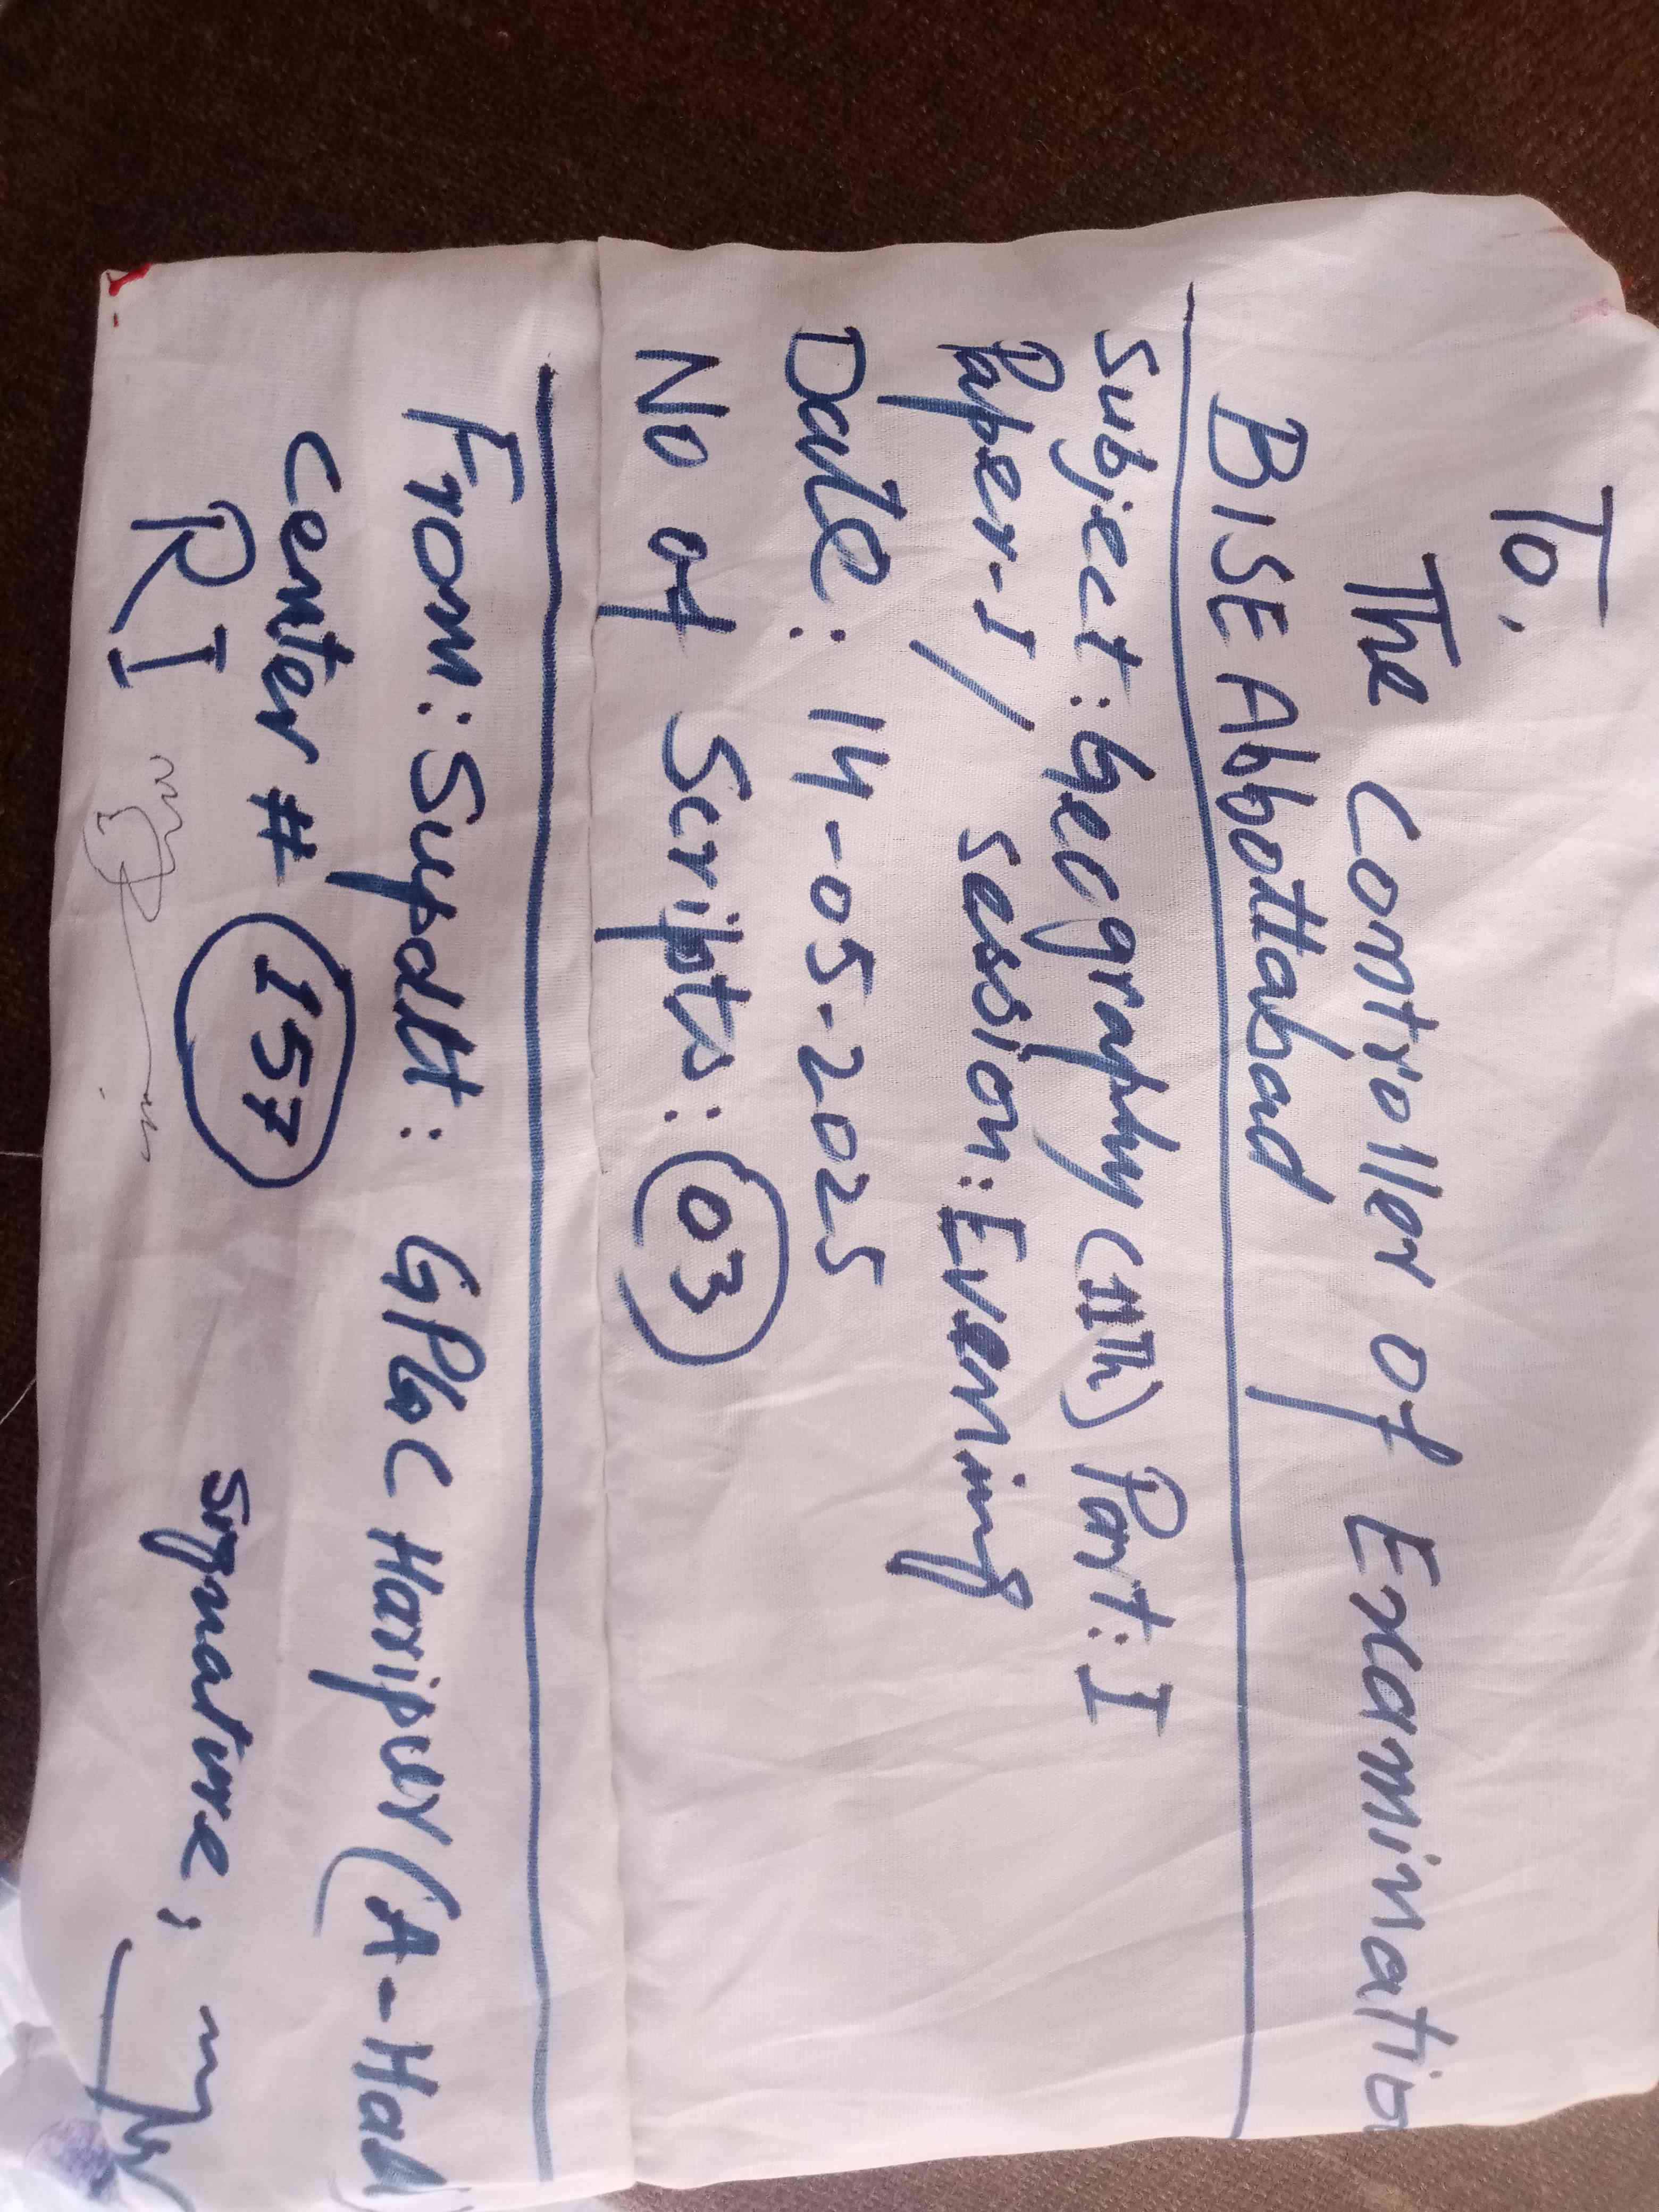 To,
The Controller of Examination
BISE Abbottabad
Subject: Geography (11Th) Part: I
Paper-I / Session: Evening
Date: 14-05-2025
No of Scripts: 03
From: Supdtt: GPGC Haripur (A-Hall
Center # 157
RI
Signature: